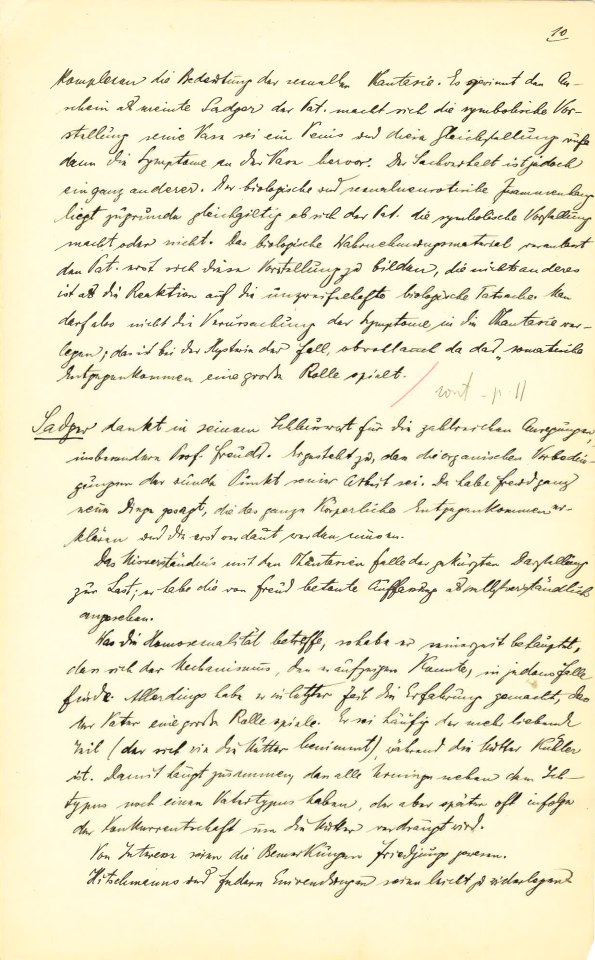 10
Komplexen die Bedeutung der sexuellen Phantasie. Es gewinnt den An-
schein als meinte Sadger der Pat. macht sich die symbolische Vor-
stellung seine Nase sei ein Penis und diese Gleichstellung rufe
dann die Symptome an der Nase hervor. Der Sachverhalt ist jedoch
ein ganz anderer. Der biologische und sexualneurotische Zusammenhang
liegt zugrunde gleichgiltig ob sich der Pat. die symbolische Vorstellung
macht oder nicht. Das biologische Wahrnehmungsmaterial veranlasst
den Pat. erst sich diese Vorstellung zu bilden, die nichts anderes
ist als die Reaktion auf die unzweifelhafte biologische Tatsache. Man
darf also nicht die Verursachung der Symptome in die Phantasie ver-
legen; das ist bei der Hysterie der Fall, obwohl auch da das „somatische
Entgegenkommen eine große Rolle spielt.
cont - p 11
Sadger dankt in seinem Schlusswort für die zahlreichen Anregungen,
insbesondere Prof. Freuds. Er gesteht zu, dass die organischen Vorbedin-
gungen der wunde Punkt seiner Arbeit sei. Da habe Freud ganz
neue Dinge gesagt, die das ganze körperliche Entgegenkommen er-
klären und die erst verdaut werden müssen.
Das Missverständnis mit den Phantasien falle der gekürzten Darstellung
zur Last; er habe die von Freud betonte Auffassung als selbstverständlich
angesehen.
Was die Homosexualität betreffe, so habe er seinerzeit behauptet,
dass sich der Mechanismus, den er aufzeigen konnte, in jedem Falle
finde. Allerdings habe er in letzter Zeit die Erfahrung gemacht, dass
der Vater eine große Rolle spiele. Er sei häufig der mehr liebende
Teil (der sich wie die Mütter benimmt), während die Mutter kühler
ist. Damit hängt zusammen, dass alle Urninge neben dem Ich-
typus noch einen Vatertypus haben, der aber später oft infolge
der Konkurrentschaft um die Mutter verdrängt wird.
Von Interesse seien die Bemerkungen Friedjungs gewesen.
Hitschmanns und Federn Einwendungen seien leicht zu widerlegen